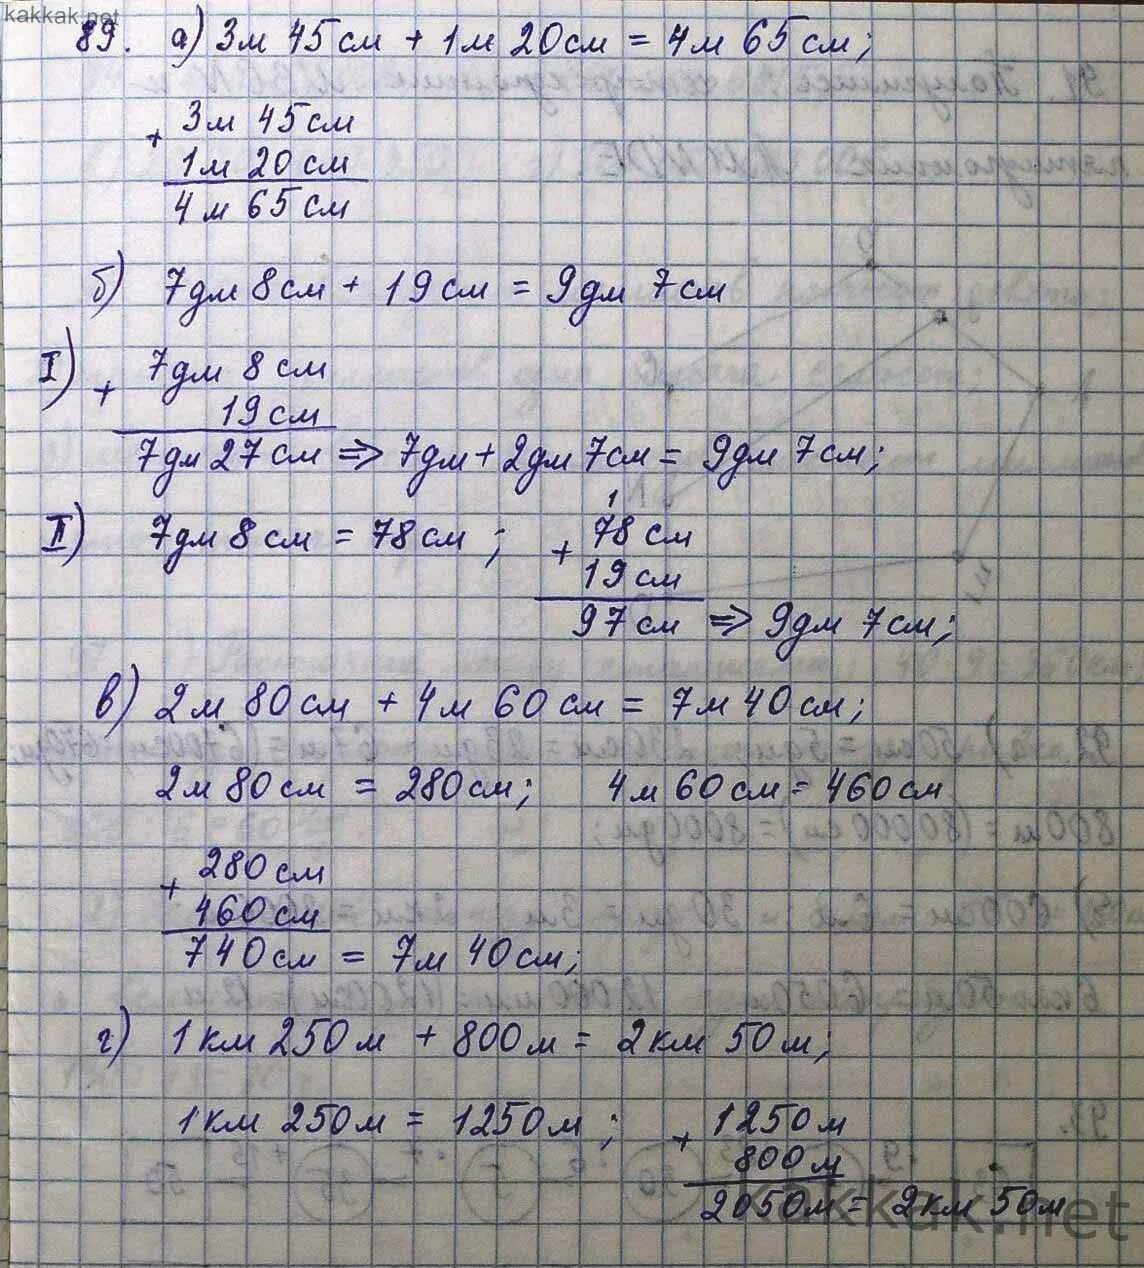 kakkak.net
89. а) 3м 45см + 1м 20см = 4м 65см;
+ 3м 45см
1м 20см
4м 65см
б) 7дм 8см + 19см = 9дм 7см
I) + 7дм 8см
19см
7дм 27см => 7дм + 2дм 7см = 9дм 7см;
II) 7дм 8см = 78см; + 1 78см
19см
97см => 9дм 7см;
в) 2м 80см + 4м 60см = 7м 40см;
2м 80см = 280см; 4м 60см = 460см
+ 280см
460см
740см = 7м 40см;
г) 1км 250м + 800м = 2км 50м;
1км 250м = 1250м; + 1250м
800м
2050м = 2км 50м
kakkak.net